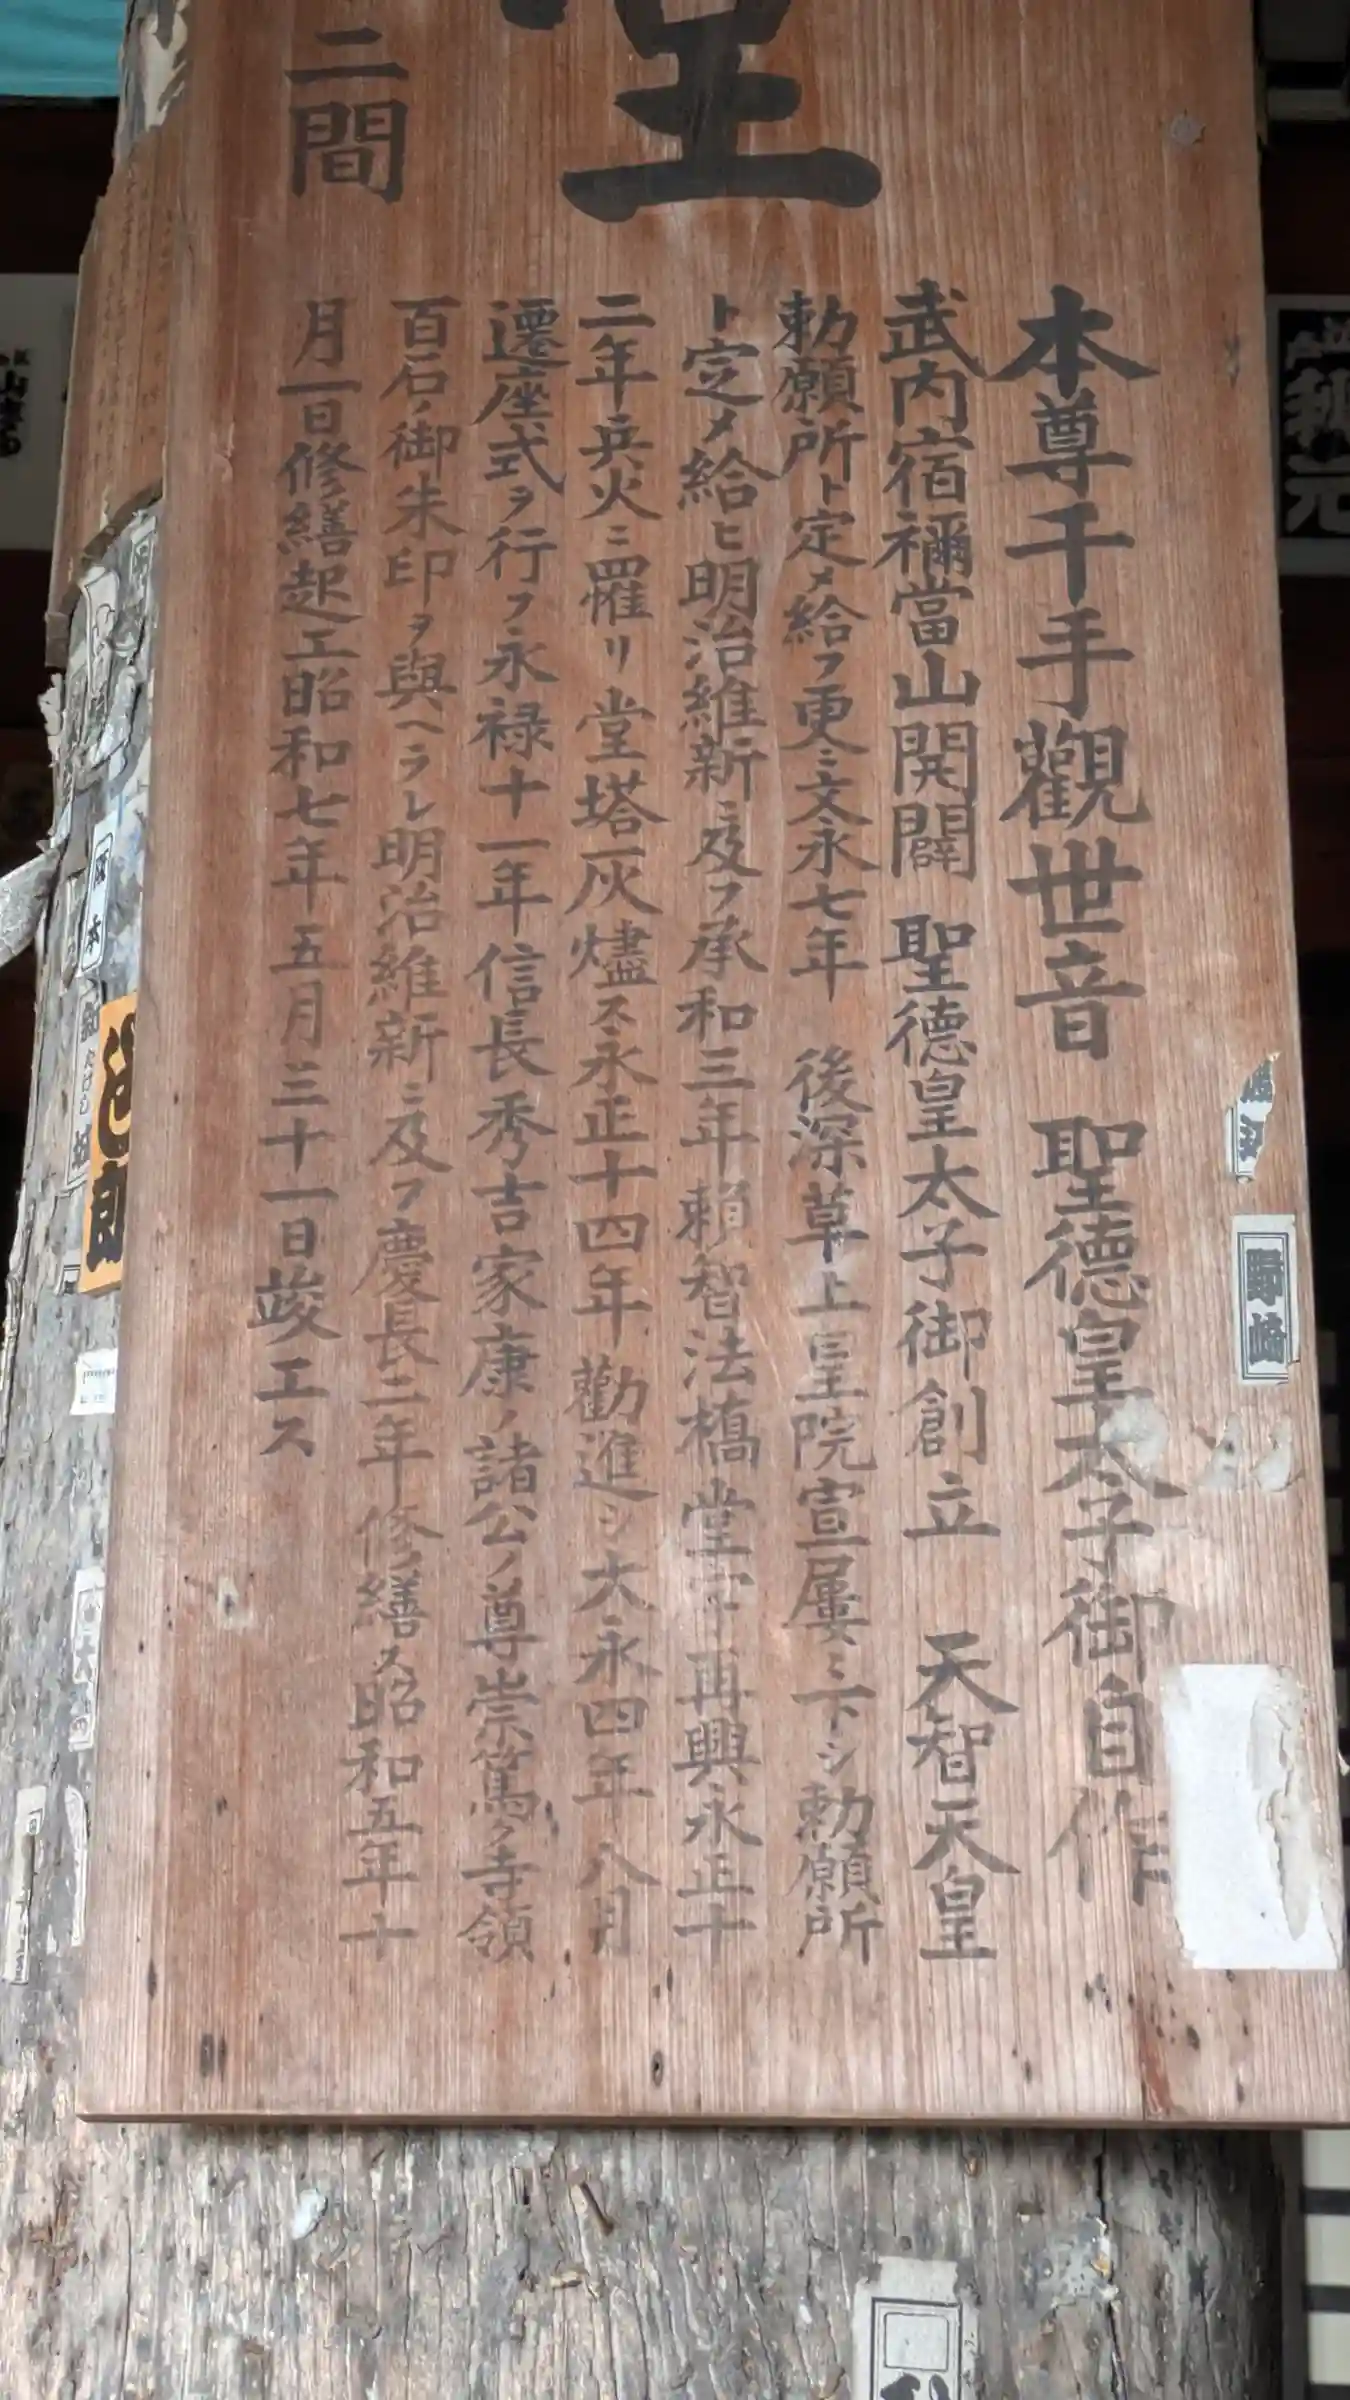 堂
二間
本尊千手觀世音　聖德皇太子御自作
武内宿禰當山開闢　聖德皇太子御創立　天智天皇
勅願所ト定メ給フ更ニ文永七年　後深草上皇院宣屢々ニ下シ勅願所
ト定メ給ヒ明治維新ニ及フ承和三年賴智法橋堂宇再興永正十
二年兵火ニ罹リ堂塔灰燼ス永正十四年勸進シ大永四年八月
遷座式ヲ行フ永禄十一年信長秀吉家康ノ諸公ノ尊崇篤ク寺領
百石ノ御朱印ヲ與ヘラレ明治維新ニ及フ慶長二年修繕ス昭和五年十
月一日修繕起工昭和七年五月三十一日竣工ス
野崎
阪本